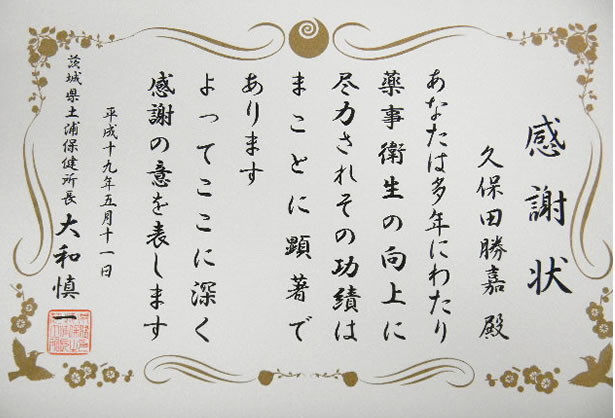 感謝状
久保田勝嘉 殿
あなたは多年にわたり
薬事衛生の向上に
尽力されその功績は
まことに顕著で
あります
よってここに深く
感謝の意を表します
平成十九年五月十一日
茨城県土浦保健所長 大和慎一